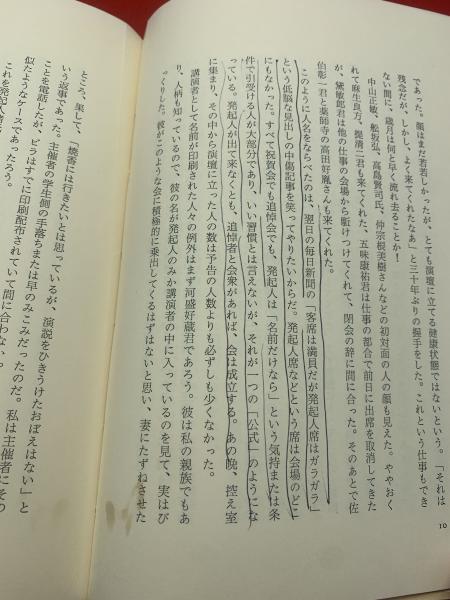 であった。顔はまだ若若しかったが、とても演壇に立てる健康状態ではないという。「それは
残念だが、しかし、よく来てくれたなあ」と三十年ぶりの握手をした。これという仕事もでき
ない間に、歳月は何と早く流れ去ることか！
中山正敏、舩坂弘、高島賢司氏、仲宗根美樹さんなどの初対面の人の顔も見えた。ややおく
れて麻生良方、堤清二君も来てくれた。五味康祐君は仕事の都合で前日に出席を取消してきた
が、黛敏郎君は他の仕事の会場から駈けつけてくれて、閉会の辞に間に合った。そのあとで佐
伯彰一君と薬師寺の高田好胤さんも来てくれた。
このように人名をならべたのは、翌日の毎日新聞の「客席は満員だが発起人席はガラガラ」
という低脳な見出しの中傷記事を笑ってやりたいからだ。発起人席などという席は会場のどこ
にもなかった。すべて祝賀会でも追悼会でも、発起人は「名前だけなら」という気持または条
件で引受ける人が大部分であり、いい習慣とは言えないが、それが一つの「公式」のようにな
っている。発起人が出て来なくとも、追悼者と会衆があれば、会は成立する。あの晩、控え室
に集まり、その中から演壇に立った人の数は予告の人数よりも必ずしも少くなかった。
講演者として名前が印刷された人々の例外はまず河盛好蔵君であろう。彼は私の親族でもあ
り、人柄も知っているので、彼の名が発起人のみか講演者の中に入っているのを見て、実はび
っくりした。彼がこのような会に積極的に乗出してくるはずはないと思い、妻にたずねさせた
10
ところ、果して、「焼香には行きたいとは思っているが、演説をひきうけたおぼえはない」と
いう返事であった。主催者の学生側の手落ちまたは早のみこみだったのだ。私は主催者にその
ことを電話したが、ビラはすでに印刷配布されていて間に合わない
似たようなケースであったろう。
これを発起人